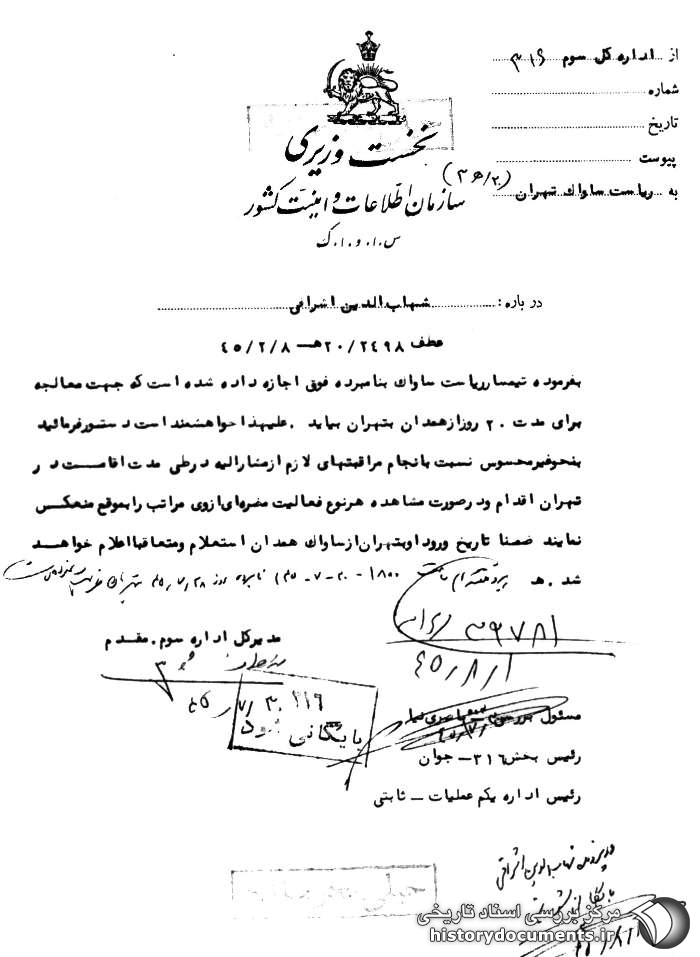 از اداره کل سوم ۳۱۶
شماره
تاریخ
پیوست
به ریاست ساواک تهران (۲۰/ه ۳)
نخست وزیری
سازمان اطلاعات و امنیت کشور
س.ا.و.ا.ک
درباره: شهاب الدین اشراقی
عطف ۲۰/۲۴۹۸ه‍ – ۴۵/۷/۸
بفرموده تیمسار ریاست ساواک بنامبرده فوق اجازه داده شده است که جهت معالجه
برای مدت ۲۰ روز از همدان بتهران بیاید. علیهذا خواهشمند است دستور فرمائید
بنحو غیر محسوس نسبت بانجام مراقبتهای لازم از مشارالیه در طی مدت اقامت در
تهران اقدام و در صورت مشاهده هر نوع فعالیت مضره ای از وی مراتب را بموقع منعکس
نمایند ضمنا تاریخ ورود او بتهران از ساواک همدان استعلام و متعاقبا اعلام خواهد
شد. ه‍
مدیر کل اداره سوم. مقدم
۳۹۷۸۱
۴۵/۸/۱
۳۱۶
بایگانی شود
مسئول بررسی
رئیس بخش ۳۱۶ – جوان
رئیس اداره یکم عملیات – ثابتی
شهاب الدین اشراقی
مرکز بررسی اسناد تاریخی
historydocuments.ir